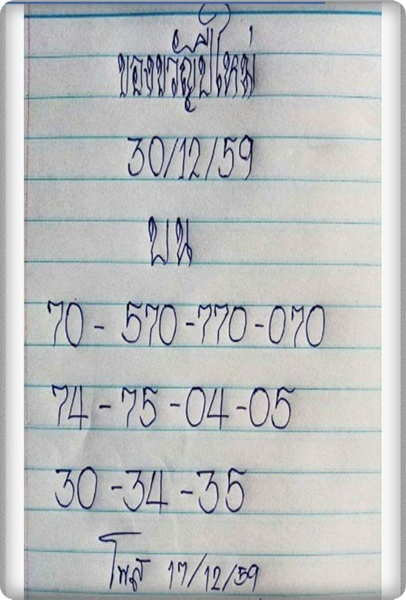 ของขวัญปีใหม่
30/12/59
บน
70 - 570 - 770 - 070
74 - 75 - 04 - 05
30 - 34 - 35
โพส 17/12/59